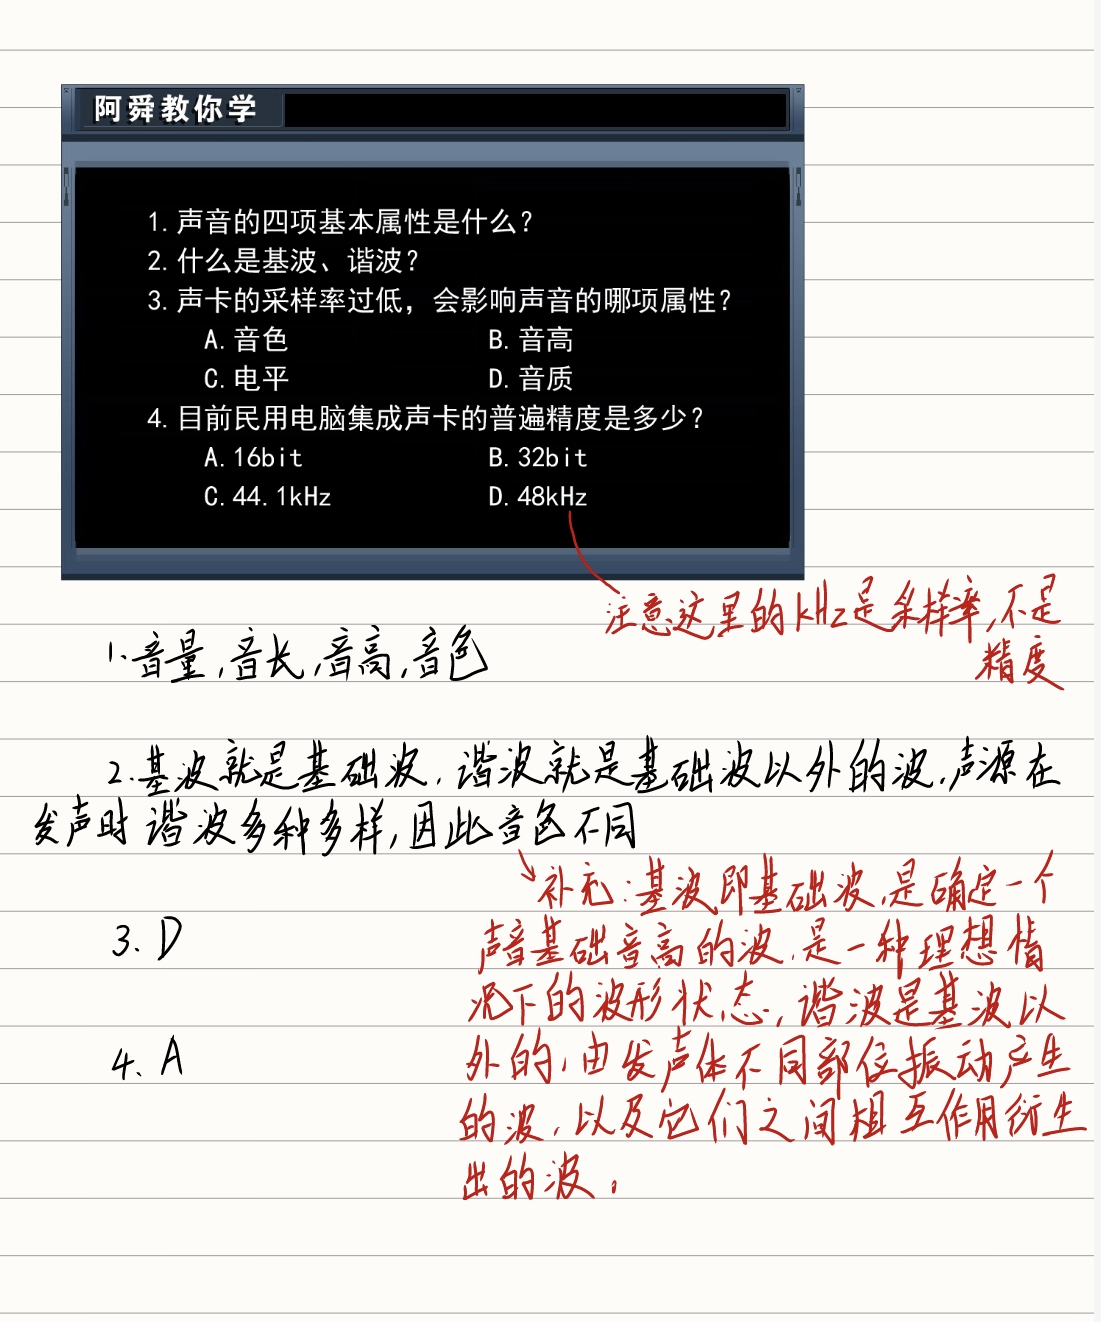 阿舜教你学
1. 声音的四项基本属性是什么？
2. 什么是基波、谐波？
3. 声卡的采样率过低，会影响声音的哪项属性？
A. 音色 B. 音高
C. 电平 D. 音质
4. 目前民用电脑集成声卡的普遍精度是多少？
A. 16bit B. 32bit
C. 44.1kHz D. 48kHz
注意这里的kHz是采样率,不是
精度
1.音量,音长,音高,音色
2.基波就是基础波,谐波就是基础波以外的波,声源在
发声时谐波多种多样,因此音色不同
补充:基波即基础波,是确定一个
声音基础音高的波,是一种理想情
况下的波形状态,谐波是基波以
外的,由发声体不同部位振动产生
的波,以及它们之间相互作用衍生
出的波。
3. D
4. A